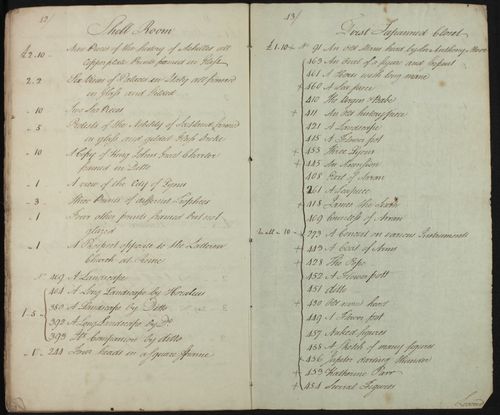 12/
Shell Room
£2..10 - Nine Pieces of the history of Achilles all
Copperplate Prints framed in Glass
2..2 Six Views of Palaces in Italy all framed
in Glass and Gilded
- 10 Two Sea Pieces
- 5 of the Nobility of Scotland framed
in glass and gilded
- 10 A Copy of King Johns Great Charter
framed in Ditto
- 1 A view of the City of
- 3 Three Prints of different
- 1 Four other prints framed but not
glazed
- 1 A Prospect opposite to the Lateran
Church at Rome
No 469 A Landscape
404 A Long Landscape by
380 A Landscape by Ditto
1..5 - 392 A Long Landscape by Do
393 Its Companion by ditto
- 1 - 244 Four heads in a Square frame
13/
Japanned Closet
£1..10 + No 91 An old Mans head by Sir Anthony More
463 of a figure and
461 A Horse with long mane
+ 460 A Sea piece
410 The Virgin & Babe
+ 411 An old history piece
421 A Landscape
415 A Flower pot
+ 455 Three
+ 445 An
408 Earl of Arran
261 A Sea piece
+ 418 James the Sixth
409 Countess of Arran
- 10 - 273 A Concert on various Instruments
+ 443 A Coat of Arms
+ 428 The Pope
452 A Flower pott
451 ditto
+ 430 Old mans head
449 A Flower pot
457 Naked figures
458 A Sketch of many figures
+ 456 Jupiter darting thunder
+ 453 Katharine Parr
+ 454 Several Figures